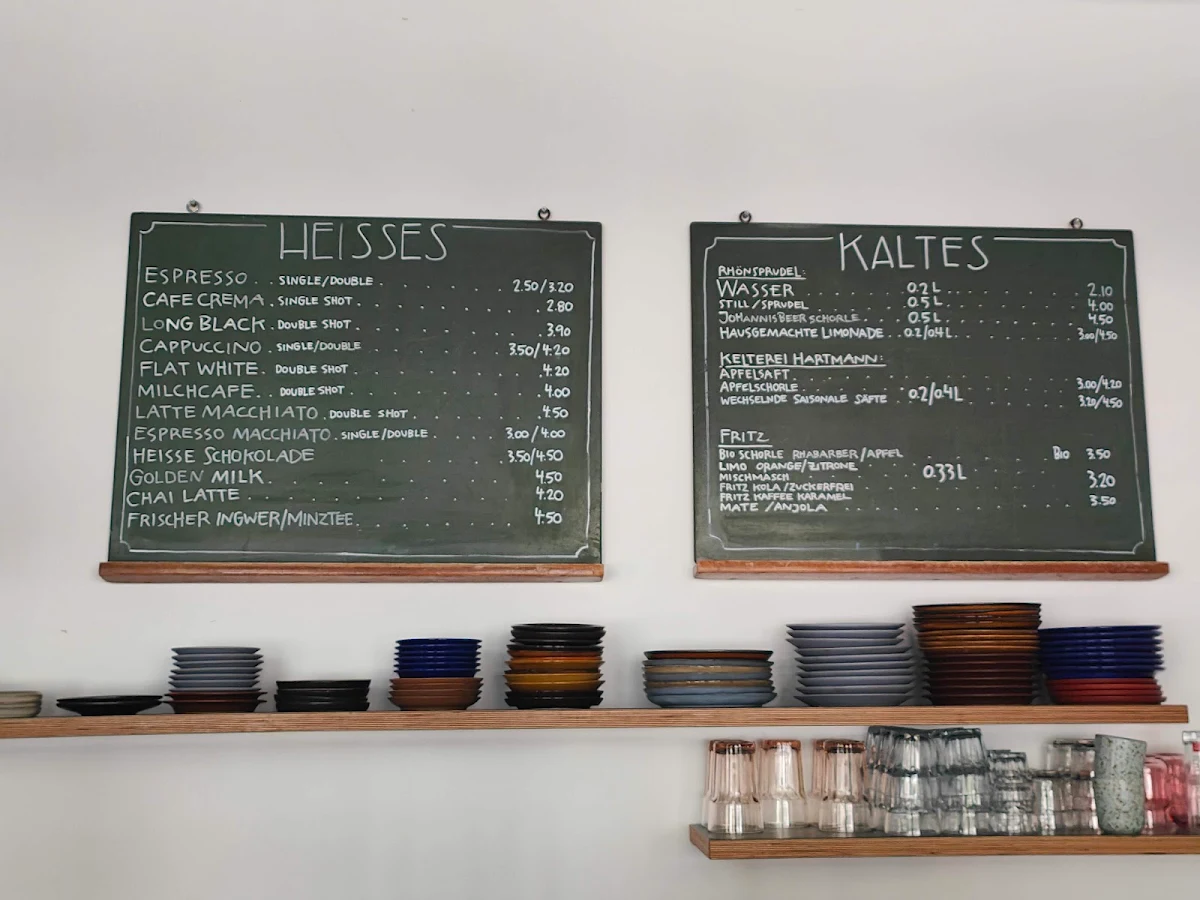 HEISSES
ESPRESSO . . SINGLE/DOUBLE . . . . . 2.50/3.20
CAFE CREMA . SINGLE SHOT . . . . . . 2.80
LONG BLACK . DOUBLE SHOT . . . . . . 3.90
CAPPUCCINO . SINGLE/DOUBLE . . . . 3.50/4.20
FLAT WHITE . DOUBLE SHOT . . . . . . 4.20
MILCHCAFE . . DOUBLE SHOT . . . . . . 4.00
LATTE MACCHIATO . DOUBLE SHOT . . . . . 4.50
ESPRESSO MACCHIATO . SINGLE/DOUBLE . . . . 3.00/4.00
HEISSE SCHOKOLADE . . . . . 3.50/4.50
GOLDEN MILK . . . . . . . . 4.50
CHAI LATTE . . . . . . . . 4.20
FRISCHER INGWER/MINZTEE . . . . . . 4.50
KALTES
RHÖNSPRUDEL:
WASSER . . . . 0.2 L . . . . . . 2.10
STILL/SPRUDEL . . . . 0.5 L . . . . . . 4.00
JOHANNISBEERSCHORLE . . . 0.5 L . . . . . . 4.50
HAUSGEMACHTE LIMONADE . . 0.2/0.4 L . . . . . . 3.00/4.50
KELTEREI HARTMANN:
APFELSAFT
APFELSCHORLE . . . . . . 3.00/4.20
WECHSELNDE SAISONALE SÄFTE . 0.2/0.4 L . . . . . 3.20/4.50
FRITZ
BIO SCHORLE RHABARBER/APFEL . . . . . Bio 3.50
LIMO ORANGE/ZITRONE
MISCHMASCH . . . 0.33 L . . . . . 3.20
FRITZ KOLA/ZUCKERFREI
FRITZ KAFFEE KARAMEL . . . . . 3.50
MATE /ANJOLA